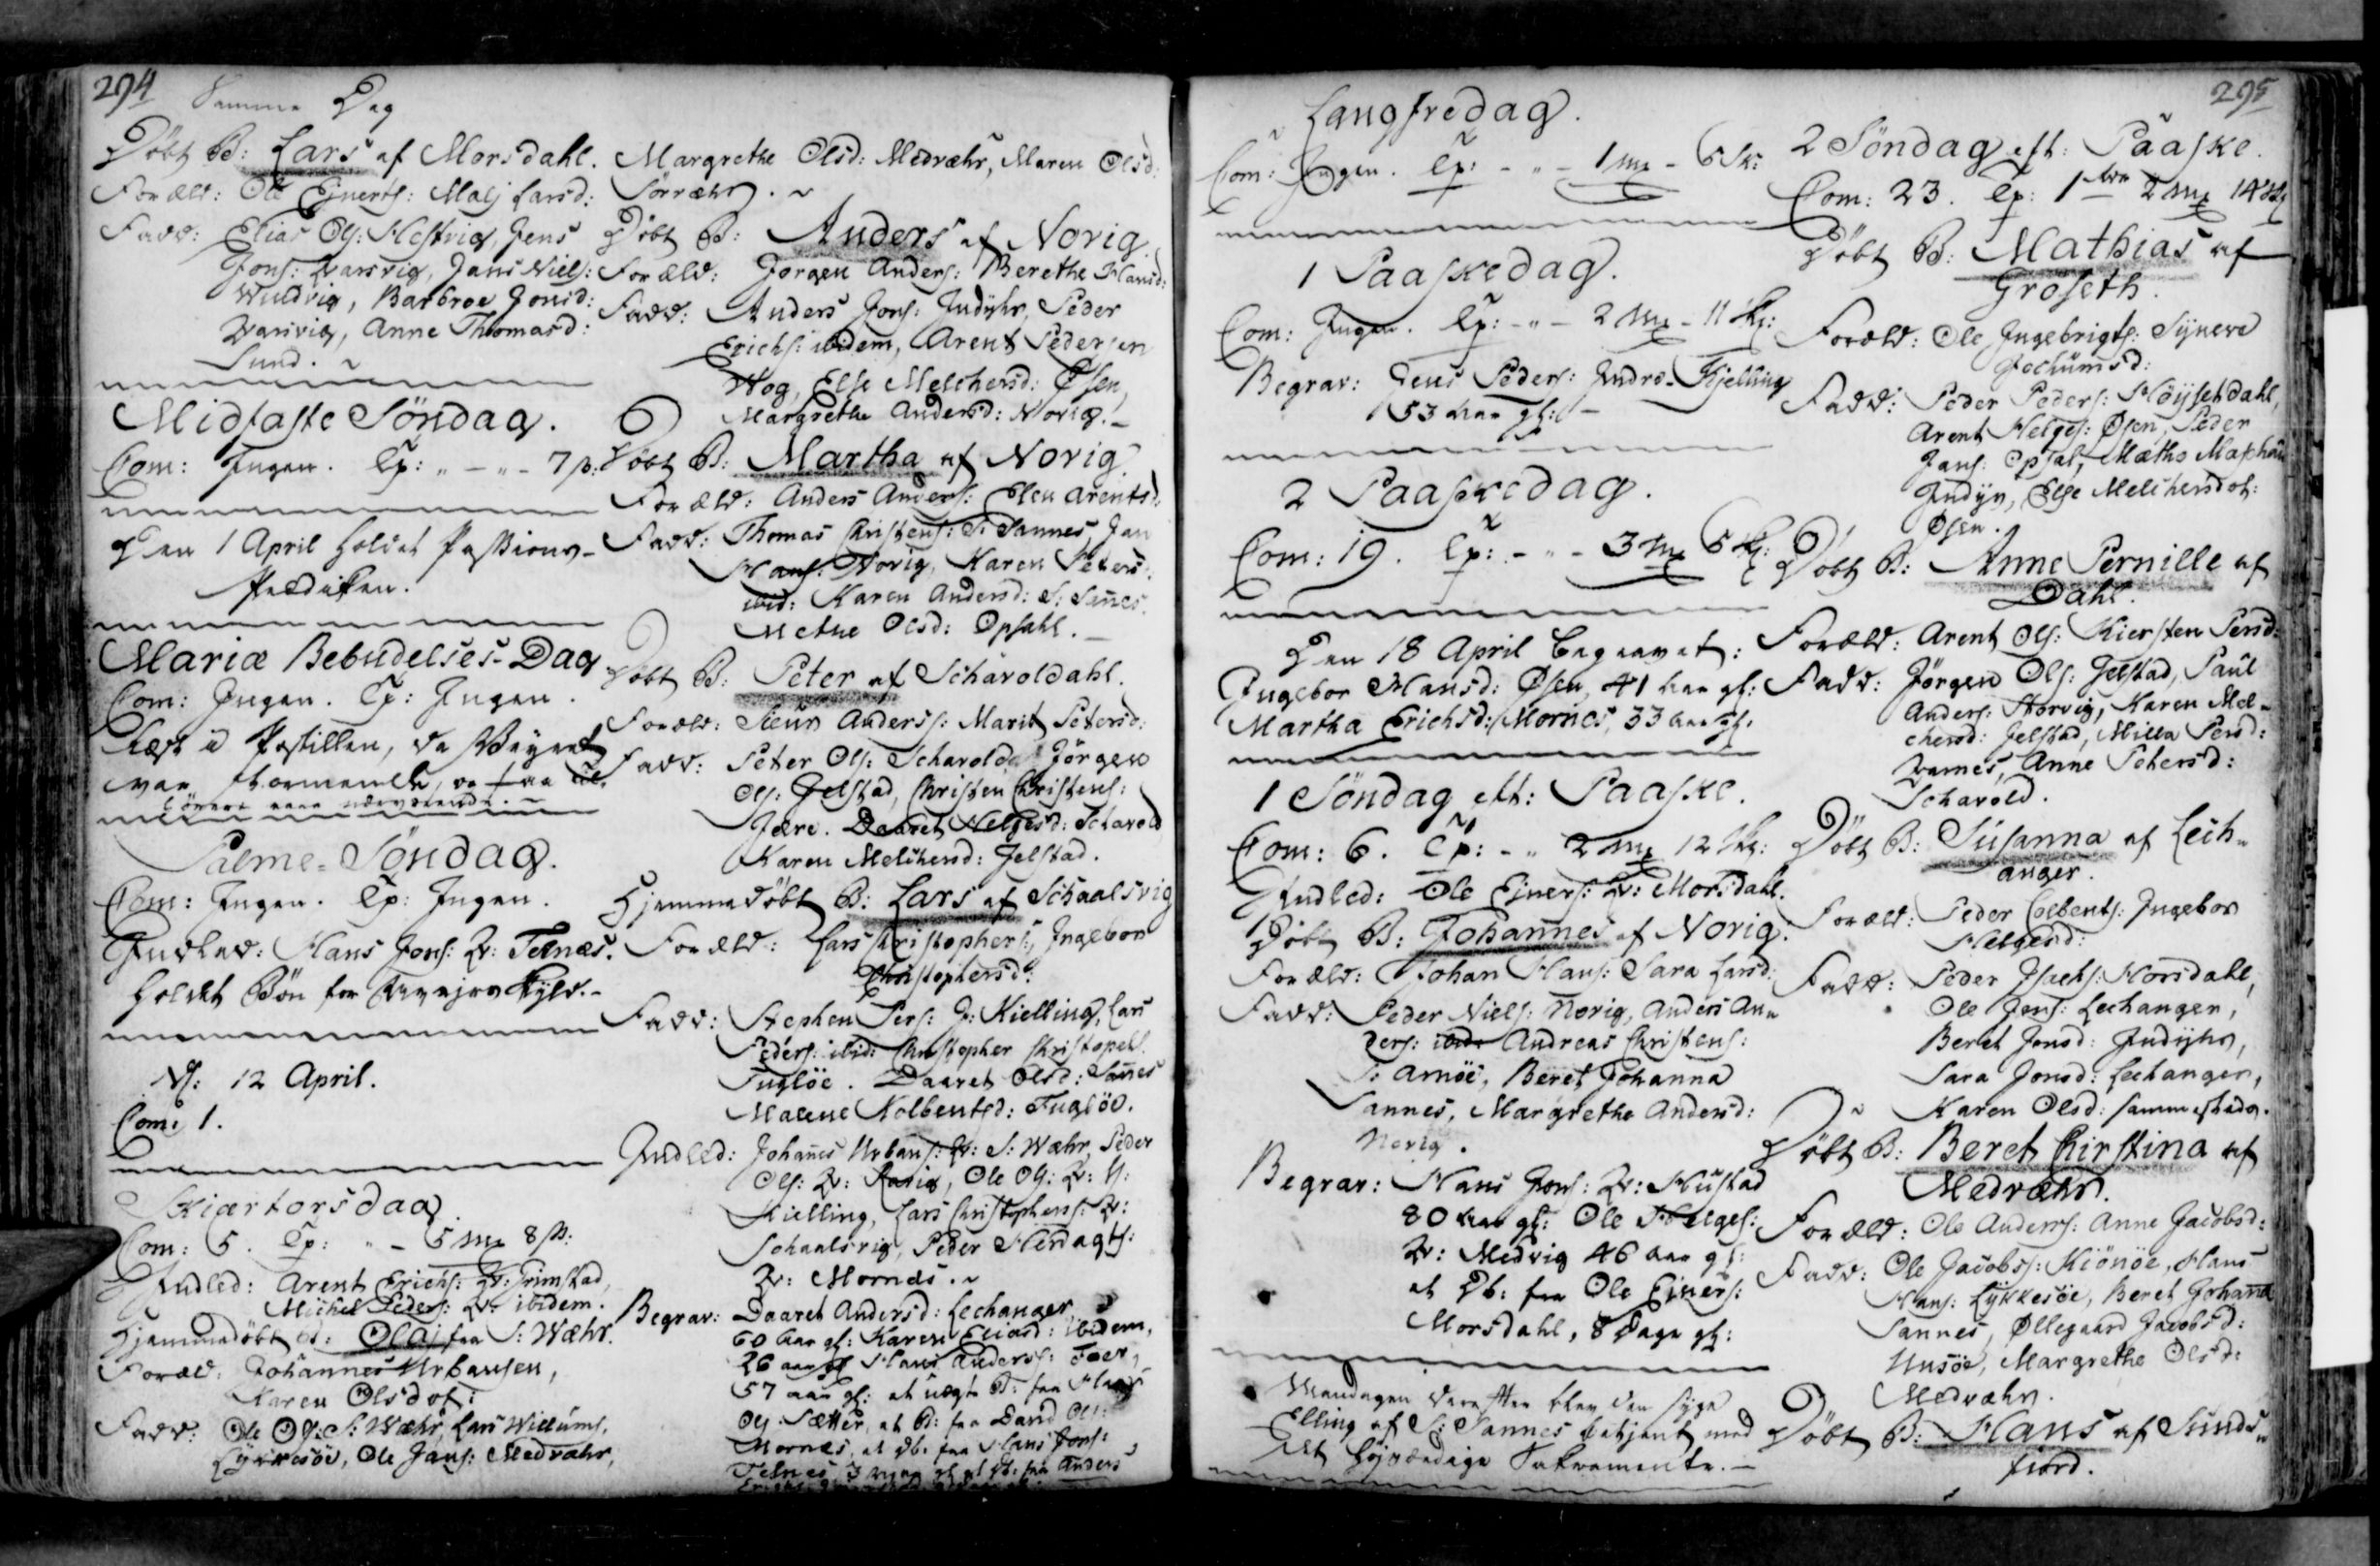 294
Samme Dag
Døbt B: Lars af Morsdahl.
Foræld: Ole Ejnerts: Malj Larsd:
Fadd: Elias Ols: Hestvig, Jens
Jons: Varsvig, Jans Niels:
Barbroe Jonsd:
Varsvig, Anne Thomasd:
Sund.
Midfaste Søndag.
Com: Ingen. Tp: " - " - 7 s:
Den 1 April holdet Passions-
Prædiken.
Mariæ Bebudelses-Dag
Com: Ingen. Tp: Ingen.
Læst i Postillen, da Veyret
var stormende, og faa
nærværende.
Palme-Søndag.
Com: Ingen. Tp: Ingen.
Indled: Hans Jons: Qv: Telnæs.
Holdet Bøn for
Ns: 12 April.
Com: 1.
Skiærtorsdag.
Com: 5. Tp: " - 5 mk 8 s:
Indled: Arent Erichs: Qv: Grimstad,
Michel Peders: Qv: ibidem.
Hjemmedøbt B: Olaj fra S: Wæhr.
Foræld: Johannes Urbansen,
Karen Olsdot:
Fadd: Ole Ols: S: Wæhr, Lars Willums:
Lykkesøe, Ole Jans: Medvæhr,
Margrethe Olsd: Medvæhr, Maren Olsd:
Sørvæhr.
Døbt B: Anders af Norig.
Foræld: Jørgen Anders: Berethe Hansd:
Fadd: Anders Jons: Indyhr, Peder
Erichs: ibidem, Arent Pedersen
Wog, Else Melchersd: Øsen,
Margrethe Andersd: Norig.
Døbt B: Martha af Norig.
Foræld: Anders Anders: Elen Arentsd:
Fadd: Thomas Christens: S: Sannes, Jan
Hans: Norig, Karen Peters:
ibid: Karen Andersd: S: Sannes.
Methe Olsd: Opsahl.
Døbt B: Peter af Schavoldahl.
Foræld: Steen Anderss: Marit Petersd:
Fadd: Peter Ols: Schavolda Jørgen
Ols: Jelstad, Christen Christens:
Jære. Daaret Helgesd: Schavold
Karen Melchersd: Jelstad.
Hjemmedøbt B: Lars af Schaalsvig
Foræld: Lars Christophers: Ingebor
Christophersd:
Fadd: Stephen Pers: J: Kielling, Lars
Peders: ibid: Christopher Christophs:
Fugløe. Daaret Olsd: Sannes
Malene Kolbentsd: Fugløe.
Indled: Johannes Urbans: Qv: S: Wæhr, Peder
Ols: Qv: Ole Ols: Qv: Y:
Kielling, Lars Christophers: Qv:
Schaalsvig, Peder
Qv: Mornæs.
Begrav: Daaret Andersd: Lechanger
60 aar gl: Karen Eliasd: ibidem,
26 aar gl Hans Anderss:
57 aar gl: et uægte B: fra
Ols: Sætter, et B: fra David Ols:
Mornæs, et Db: fra Hans Jons:
Telnæs, 3 gl et Db: fra Anders
295
Langfredag.
Com: Ingen. Tp: - " - 1 mk - 6 sk:
1 Paaskedag.
Com: Ingen. Tp: - " - 2 mk - 11 sk:
Begrav: Jens Peders: Indre-Kjelling
53 aar gl:
2 Paaskedag.
Com: 19. Tp: - " - 3 mk 6 sk:
Den 18 April begravet:
Ingebor Hansd: Øsen, 41 aar gl:
Martha Erichsd: Mornes, 33 aar gl:
1 Søndag eft: Paaske.
Com: 6. Tp: - " 2 mk 12 sk:
Indled: Ole Ejners: Qv: Morsdahl.
Døbt B: Johannes af Norig.
Foræld: Johan Hans: Sara Larsd:
Fadd: Peder Niels: Norig, Anders An-
ders: ibid: Andreas Christens:
S: Arnøe, Beret Johanna
Sannes, Margrethe Andersd:
Norig.
Begrav: Hans Jons: Qv: Mustad
80 aar gl: Ole Helges:
Qv: Medvig 46 aar gl:
et Db: fra Ole Ejners:
Morsdahl, 8 Dage gl:
Mandagen derefter blev den syge
Elling af S: Sannes betjent med
det høyværdige Sakramente.
2 Søndag eft: Paaske.
Com: 23. Tp: 1 2 mk 14 sk
Døbt B: Mathias af
Grøseth.
Foræld: Ole Ingebrigts: Syneve
Jochumsd:
Fadd: Peder Peders: Høysetdahl,
Arent Helges: Øsen, Peder
Jans: Opsal,
Indyr, Else Melchersdot:
Øsen.
Døbt B: Anne Pernille af
Dahl.
Foræld: Arent Ols: Kiersten Persd:
Fadd: Jørgen Ols: Jelstad, Paul
Anders: Storvig, Karen Mel-
chersd: Jelstad, Milla Persd:
Anne Petersd:
Schavold.
Døbt B: Susanna af Lech-
anger.
Foræld: Peder Colbents: Ingebor
Helgesd:
Fadd: Peder Isachs: Morsdahl,
Ole Jens: Lechanger,
Beret Jonsd: Indyhr,
Sara Jonsd: Lechanger,
Karen Olsd: sammestads.
Døbt B: Beret Chirstina af
Medvæhr.
Foræld: Ole Anders: Anne Jacobsd:
Fadd: Ole Jacobs: Kiønøe, Hans
Hans: Lykkesøe, Beret Johanna
Sannes, Øllegaard Jacobsd:
Margrethe Olsd:
Medvæhr.
Døbt B: Hans af Sunds-
fiord.